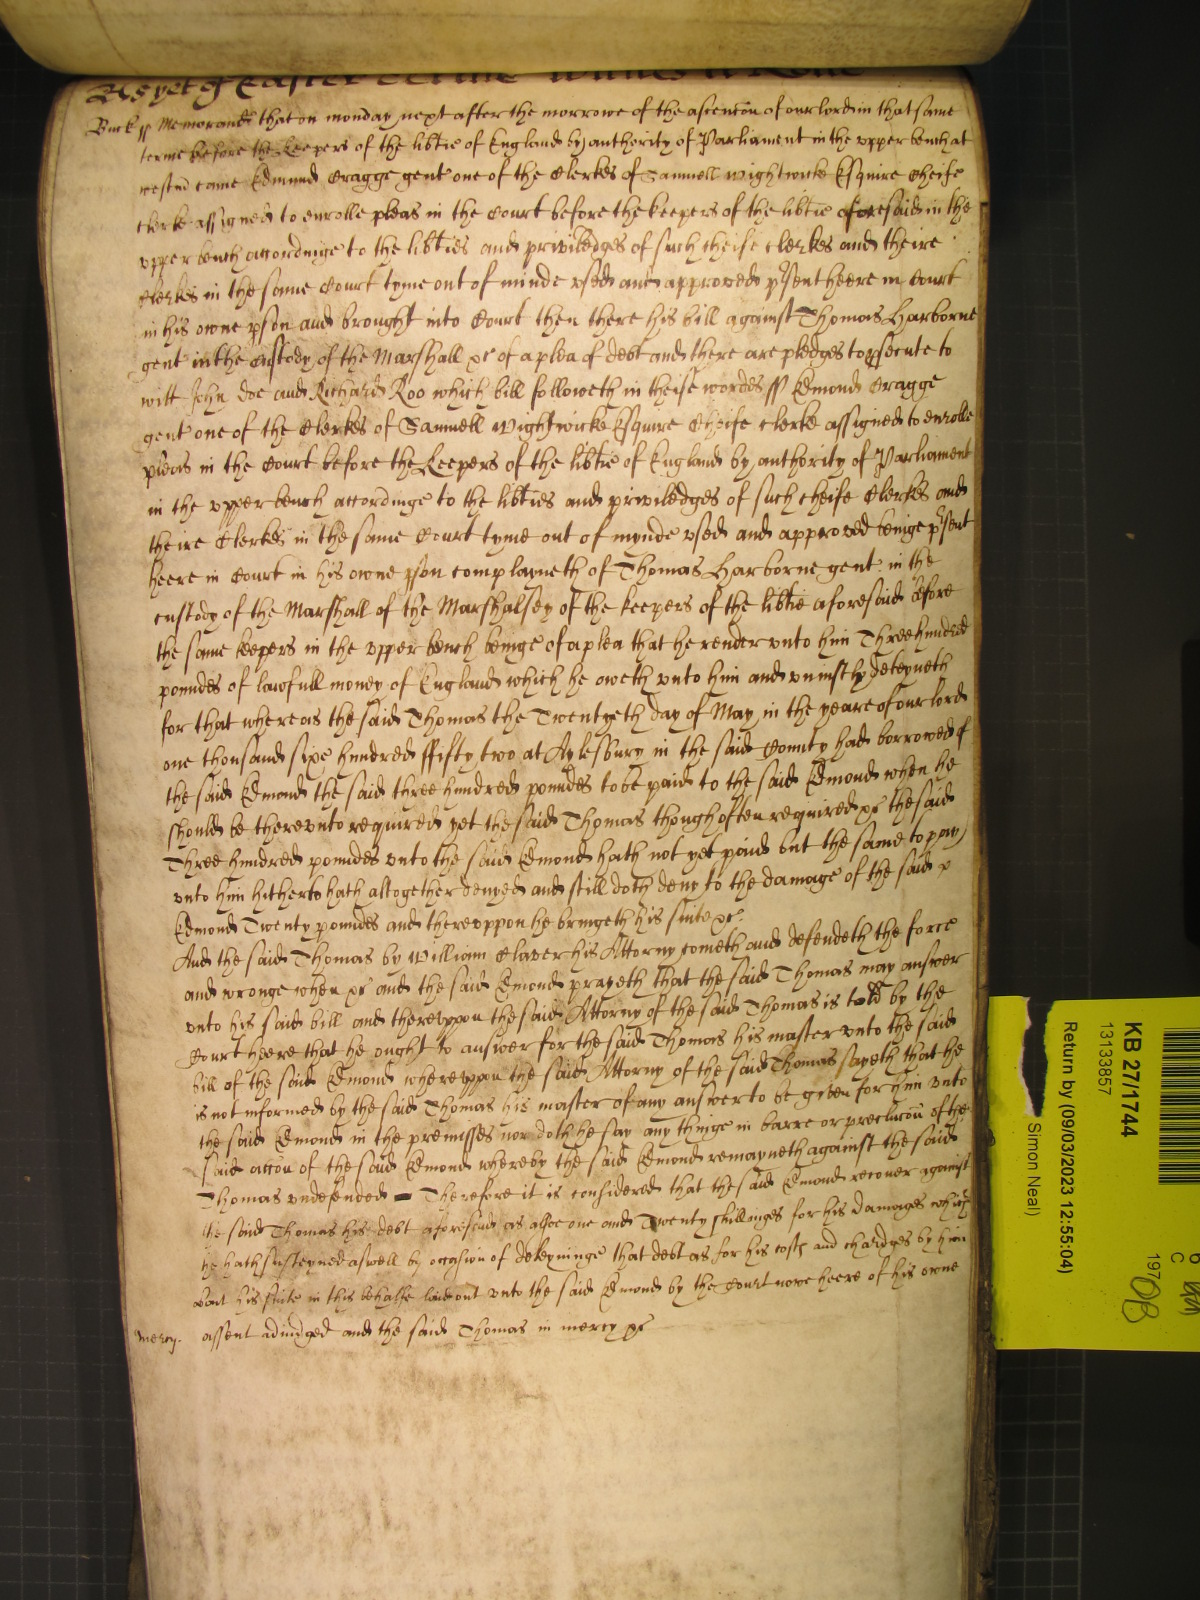 As yet of Easter terme Witnes H Rolle
Buck ss Memorand that on monday next after the morrowe of the ascencon of our lord in that same
terme before the Keepers of the libtie of England by authority of Parliament in the vpper bench at
westm came Edmund Cragge gent one of the Clerkes of Samuell Wightwicke Esquire Cheife
clerke assigned to enrolle pleas in the Court before the keepers of the libtie aforesaid in the
vpper bench accordinge to the libties and priviledges of such cheife clerkes and theire
Clerkes in the same Court tyme out of minde vsed and approved psent heere in Court
in his owne pson and brought into Court then there his bill against Thomas Harborne
gent in the custody of the Marshall xc of a plea of debt and there are pledges to psecute to
witt John Doe and Richard Roo which bill followeth in theise wordes ss Edmond Cragge
gent one of the Clerkes of Samuell Wightwicke Esquire Cheife clerke assigned to enrolle
pleas in the Court before the Keepers of the libtie of England by authority of Parliament
in the vpper bench accordinge to the libties and priviledges of such cheife Clerkes and
theire Clerkes in the same Court tyme out of mynde vsed and approved beinge psent
heere in Court in his owne pson complayneth of Thomas Harborne gent in the
custody of the Marshall of the Marshalsey of the keepers of the libtie aforesaid before
the same keepers in the vpper bench beinge of a plea that he render vnto him Three hundred
poundes of lawfull money of England which he oweth vnto him and vniustly deteyneth
for that whereas the said Thomas the Twentyeth day of May in the yeare of our lord
one thousand sixe hundred ffifty two at Aylesbury in the said County had borrowed of
the said Edmond the said three hundred poundes to be paid to the said Edmond when he
should be therevnto required yet the said Thomas though often required xc the said
Three hundred poundes vnto the said Edmond hath not yet paid but the same to pay
vnto him hitherto hath altogether denyed and still doth deny to the damage of the said
Edmond Twenty poundes and therevppon he bringeth his suite xc
And the said Thomas by William Claver his Attorny cometh and defendeth the force
and wronge when xc and the said Edmond prayeth that the said Thomas may answer
vnto his said bill and therevppon the said Attorny of the said Thomas is told by the
Court heere that he ought to answer for the said Thomas his master vnto the said
bill of the said Edmond wherevppon the said Attorny of the said Thomas sayeth that he
is not informed by the said Thomas his master of any answer to be given for him vnto
the said Edmond in the premisses nor doth he say any thinge in barre or preclucon of the
said accon of the said Edmond whereby the said Edmond remayneth against the said
Thomas vndefended Therefore it is considered that the said Edmond recover against
the said Thomas his debt aforesaid as alsoe one and Twenty shillinges for his damages which
he hath susteyned aswell by occasion of deteyninge that debt as for his costs and chardges by him
about his suite in this behalfe laid out vnto the said Edmond by the Court nowe heere of his owne
mercy. assent adiudged and the said Thomas in mercy xc
KB 27/1744
13133857
Return by (09/03/2023 12:55:04)
Simon Neal)